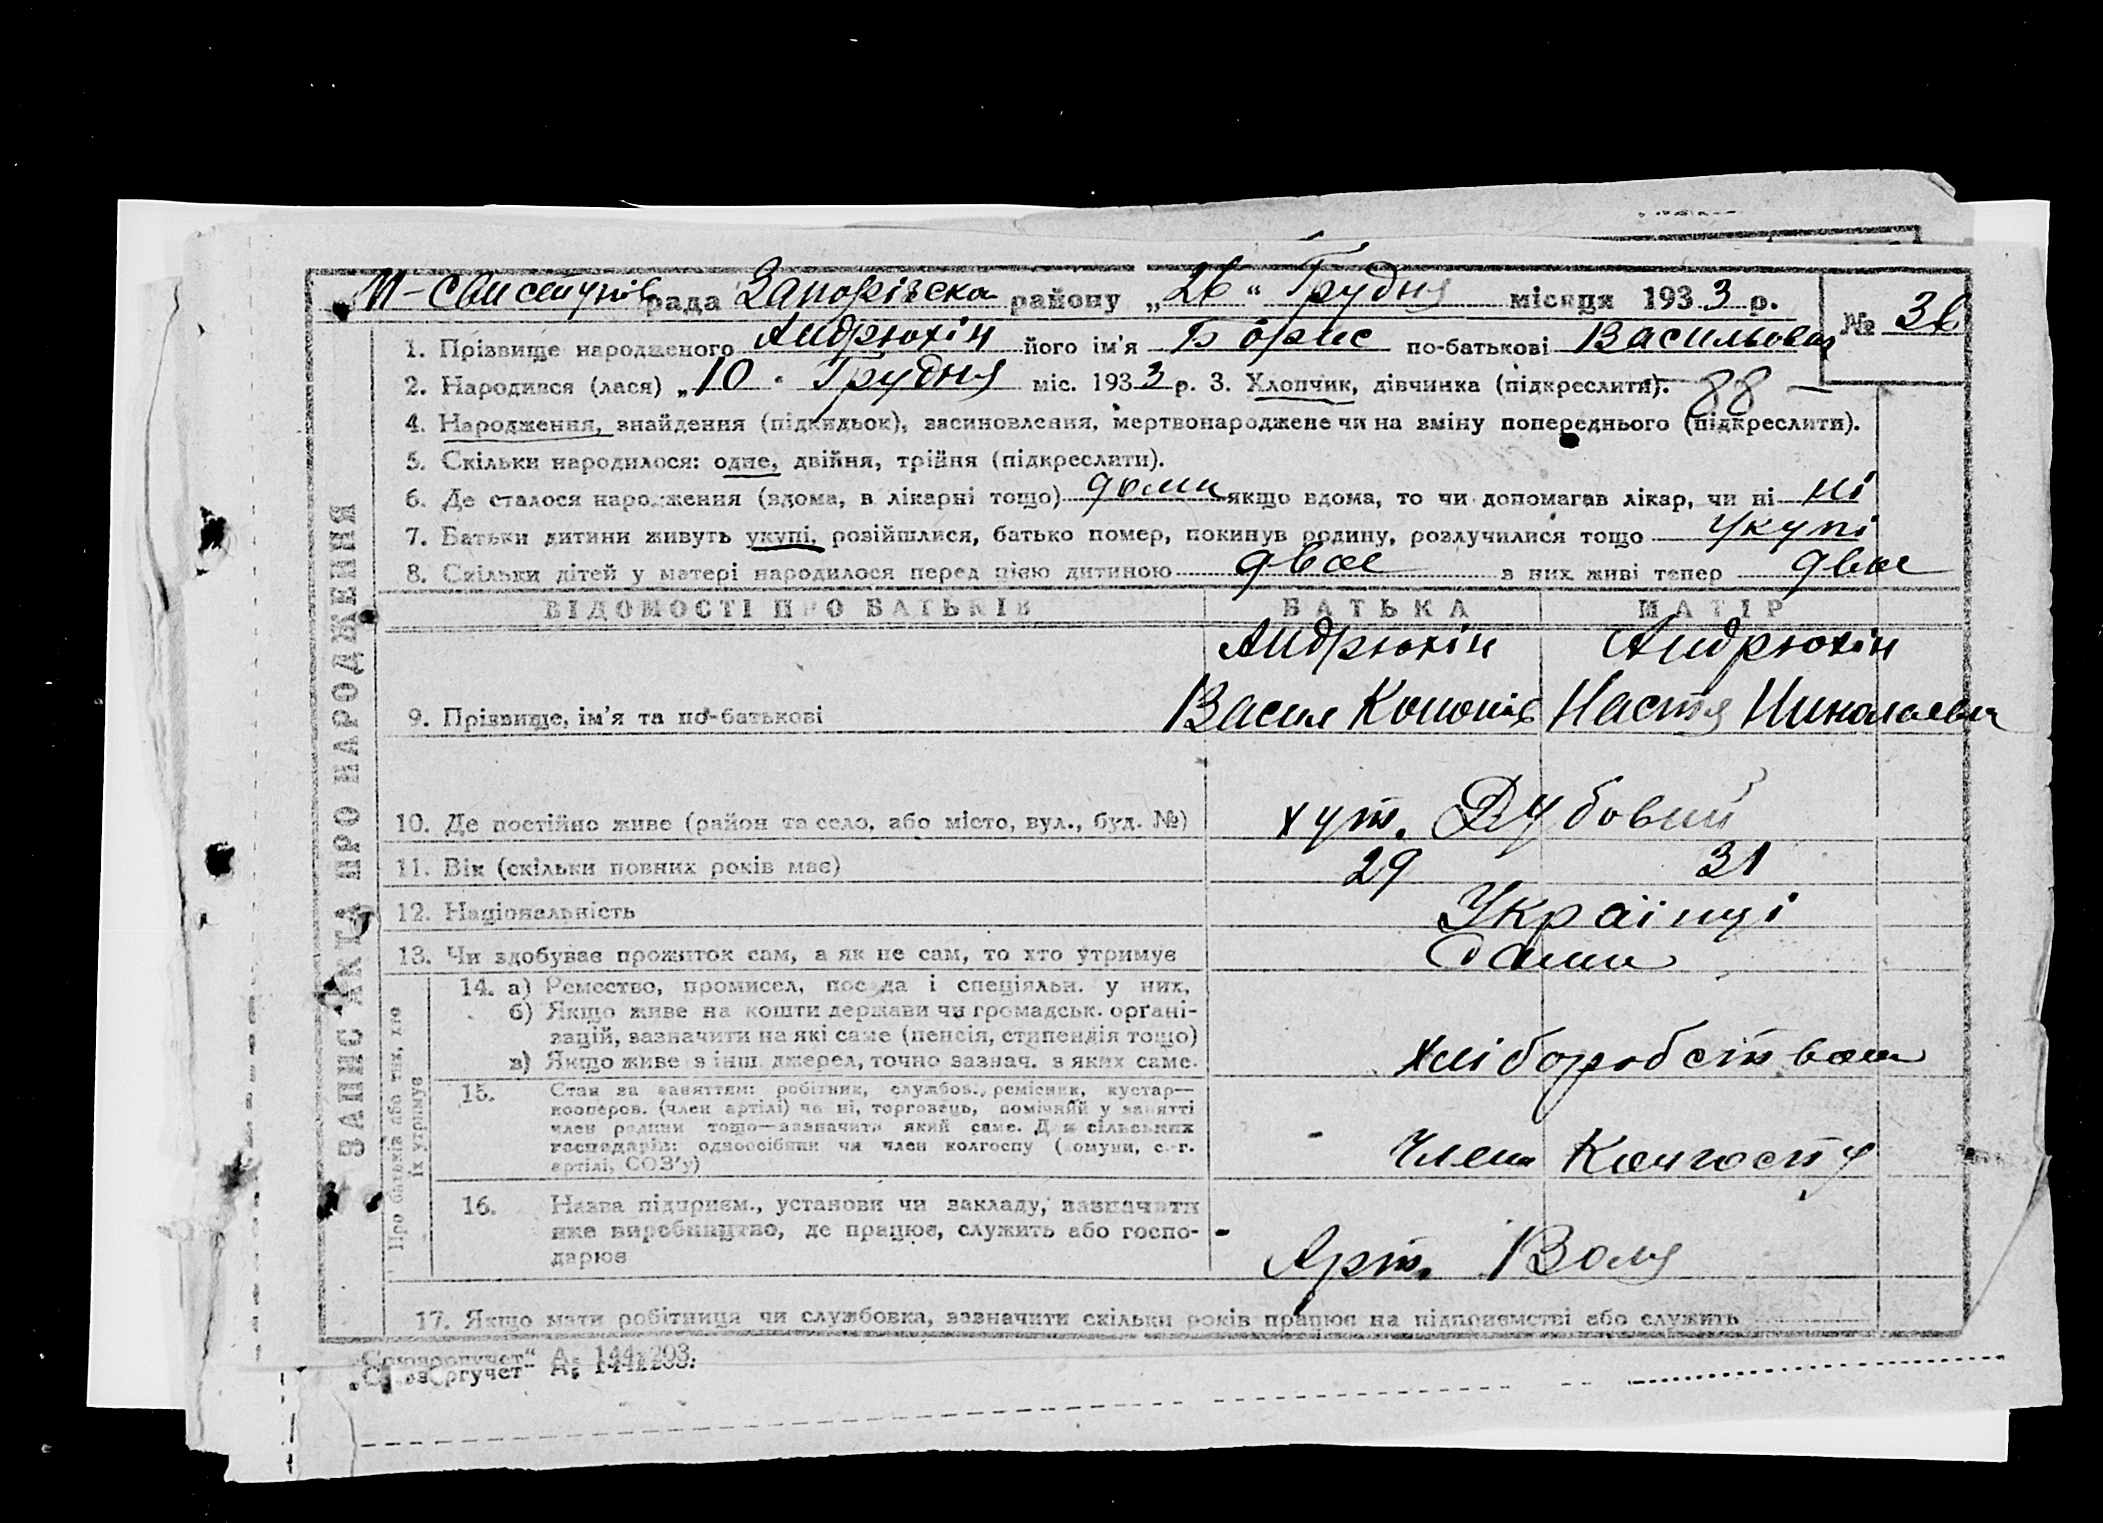 М-Свистунів рада Запорізска району „26“ Грудня місяця 1933 р.
№ 36
1. Прізвище народженого Андрюхін його ім'я Борис по-батькові Васильович
2. Народився (лася) „10 Грудня міс. 1933 р. 3. Хлопчик, дівчинка (підкреслити). 88
4. Народження, знайдення (підкидьок), засиновлення, мертвонароджене чи на зміну попереднього (підкреслити).
5. Скільки народилося: одне, двійня, трійня (підкреслити).
6. Де сталося народження (вдома, в лікарні тощо) доми якщо вдома, то чи допомагав лікар, чи ні ні
7. Батьки дитини живуть укупі, розійшлися, батько помер, покинув родину, розлучилися тощо укупі
8. Скільки дітей у матері народилося перед цією дитиною двое з них живі тепер двое
ЗАПИС АКТА ПРО НАРОДЖЕННЯ
ВІДОМОСТІ ПРО БАТЬКІВ БАТЬКА МАТІР
Андрюхін Андрюхін
9. Прізвище, ім'я та по-батькові Васил Кононів Настя Николаевна
10. Де постійно живе (район та село, або місто, вул., буд. №) хут. Дубовий
11. Вік (скільки повних років має) 29 31
12. Національність Українці
13. Чи здобуває прожиток сам, а як не сам, то хто утримує Сами
Про батьків або тих, хто
їх утримує
14. а) Ремество, промисел, посада і спеціяльн. у них,
б) Якщо живе на кошти держави чи громадськ. орґані-
зацій, зазначити на які саме (пенсія, стипендія тощо)
в) Якщо живе з інш. джерел, точно зазнач. з яких саме. хліборобством
15. Стан за заняттям: робітник, службов., ремісник, кустар—
кооперов. (член артілі) чи ні, торговець, помічний у занятті
член родини тощо—зазначити який саме. Для сільських
господарів: одноосібник чи член колгоспу (комуни, с.-г.
артілі, СОЗ'у) Член Колгоспу
16. Назва підприєм., установи чи закладу, зазначити
яке виробництво, де працює, служить або госпо-
дарює Арт. Воля
17. Якщо мати робітниця чи службовка, зазначити скільки років працює на підприємстві або служить
„Союзоргучет“ А5 144х203.